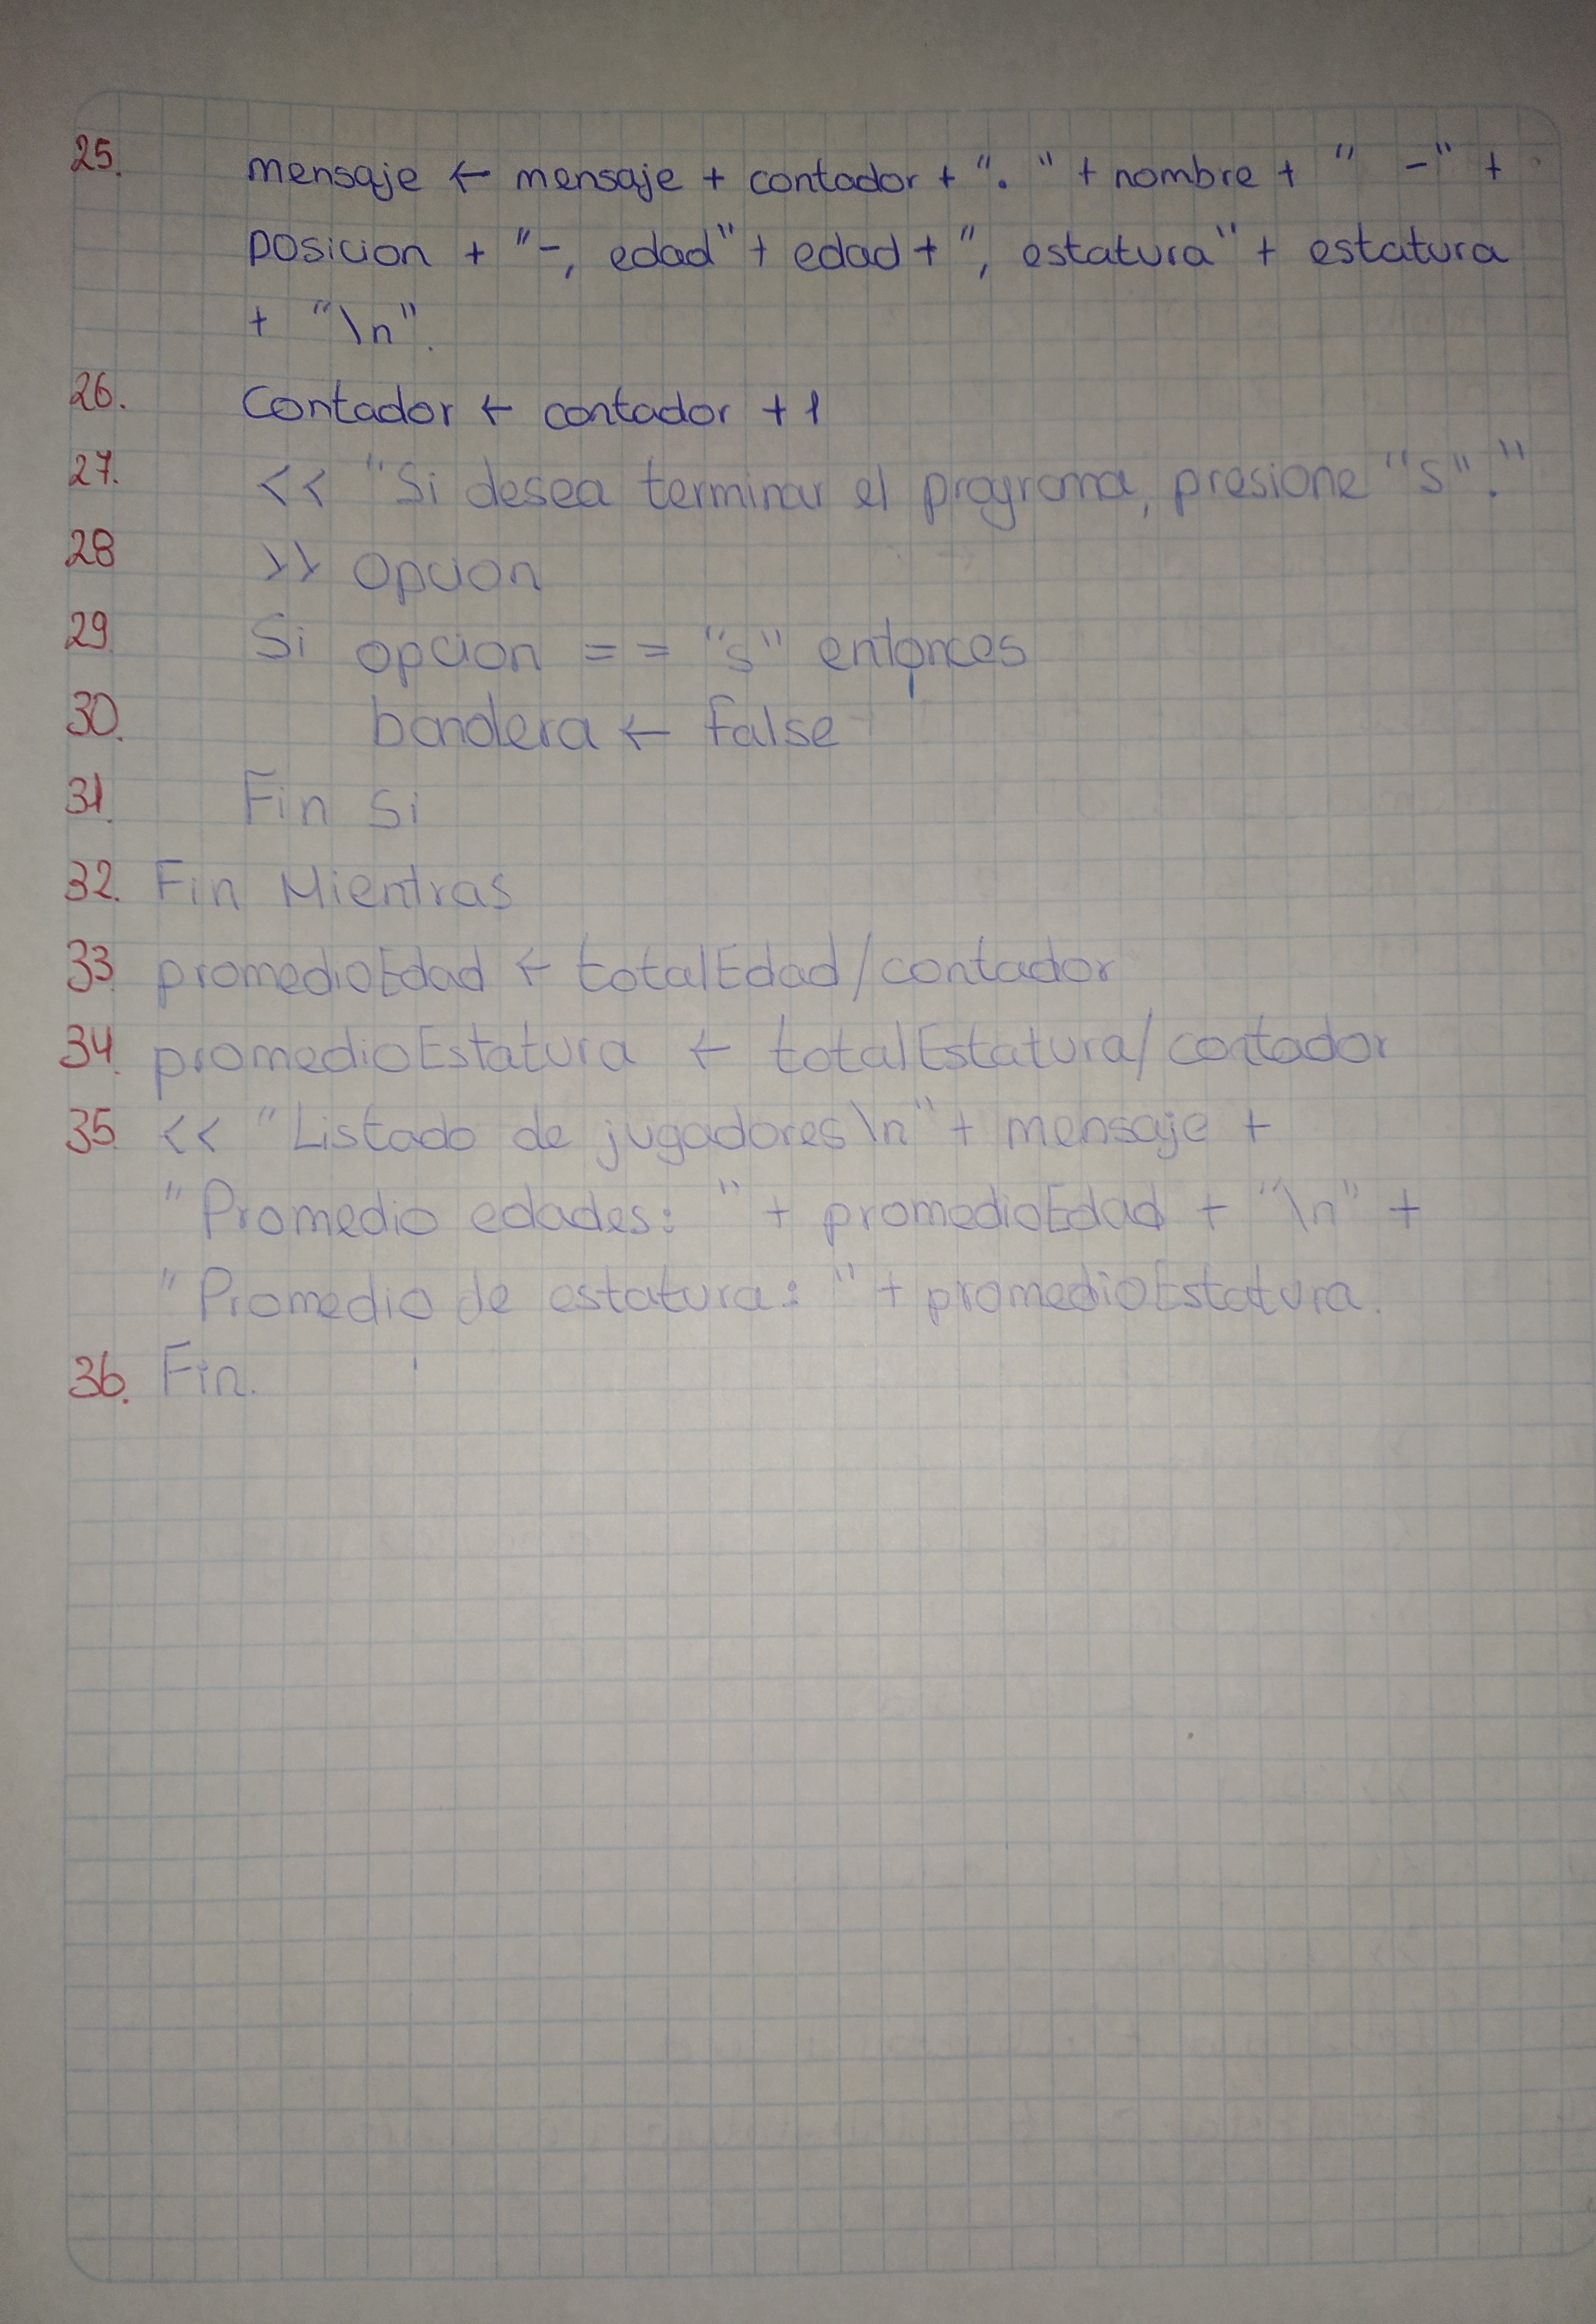 25. mensaje ← mensaje + contador + ". " + nombre + " -" +
posicion + "-, edad" + edad + ", estatura" + estatura
+ "\n".
26. Contador ← contador + 1
27. << "Si desea terminar el programa, presione "s"."
28 >> opcion
29. Si opcion == "s" entonces
30. bandera ← false
31. Fin si
32. Fin Mientras
33. promedioEdad ← totalEdad/contador
34. promedioEstatura ← totalEstatura/contador
35 << "Listado de jugadores\n" + mensaje +
"Promedio edades: " + promedioEdad + "\n" +
"Promedio de estatura: " + promedioEstatura.
36. Fin.